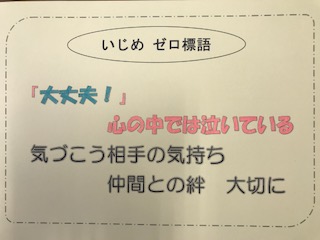 いじめ ゼロ標語
『大丈夫！』
心の中では泣いている
気づこう相手の気持ち
仲間との絆　大切に